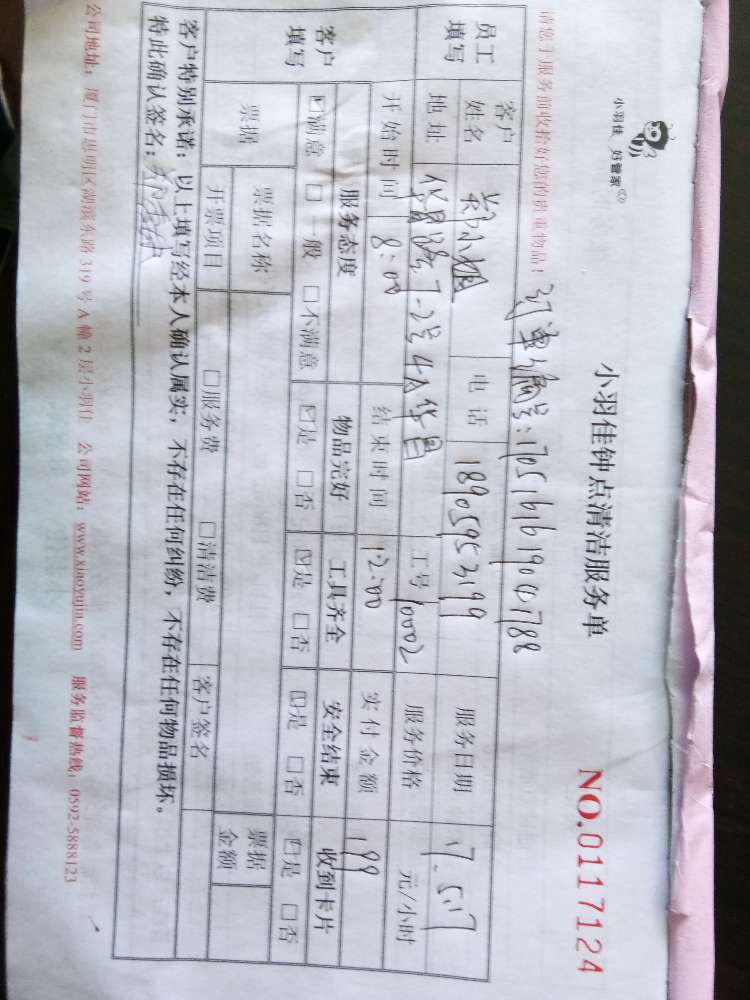 小羽佳 好管家
小羽佳钟点清洁服务单
NO.0117124
请您于服务前收拾好您的贵重物品!
订单编号:1705161619001788
员工填写 客户姓名 郑小姐 电话 18905952199 服务日期 17.5.17
地址 工号 10002 服务价格 元/小时
开始时间 8:00 结束时间 12:00 实付金额 199
客户填写 服务态度 物品完好 工具齐全 安全结束 收到卡片
☑满意 □一般 □不满意 ☑是 □否 ☑是 □否 ☑是 □否 ☑是 □否
票据 票据名称 票据金额
开票项目 □服务费 □清洁费 客户签名
客户特别承诺:以上填写经本人确认属实,不存在任何纠纷,不存在任何物品损坏。
特此确认签名:
公司地址:厦门市思明区湖滨东路319号A幢2层小羽佳 公司网站:www.xiaoyujia.com 服务监督热线:0592-5888123